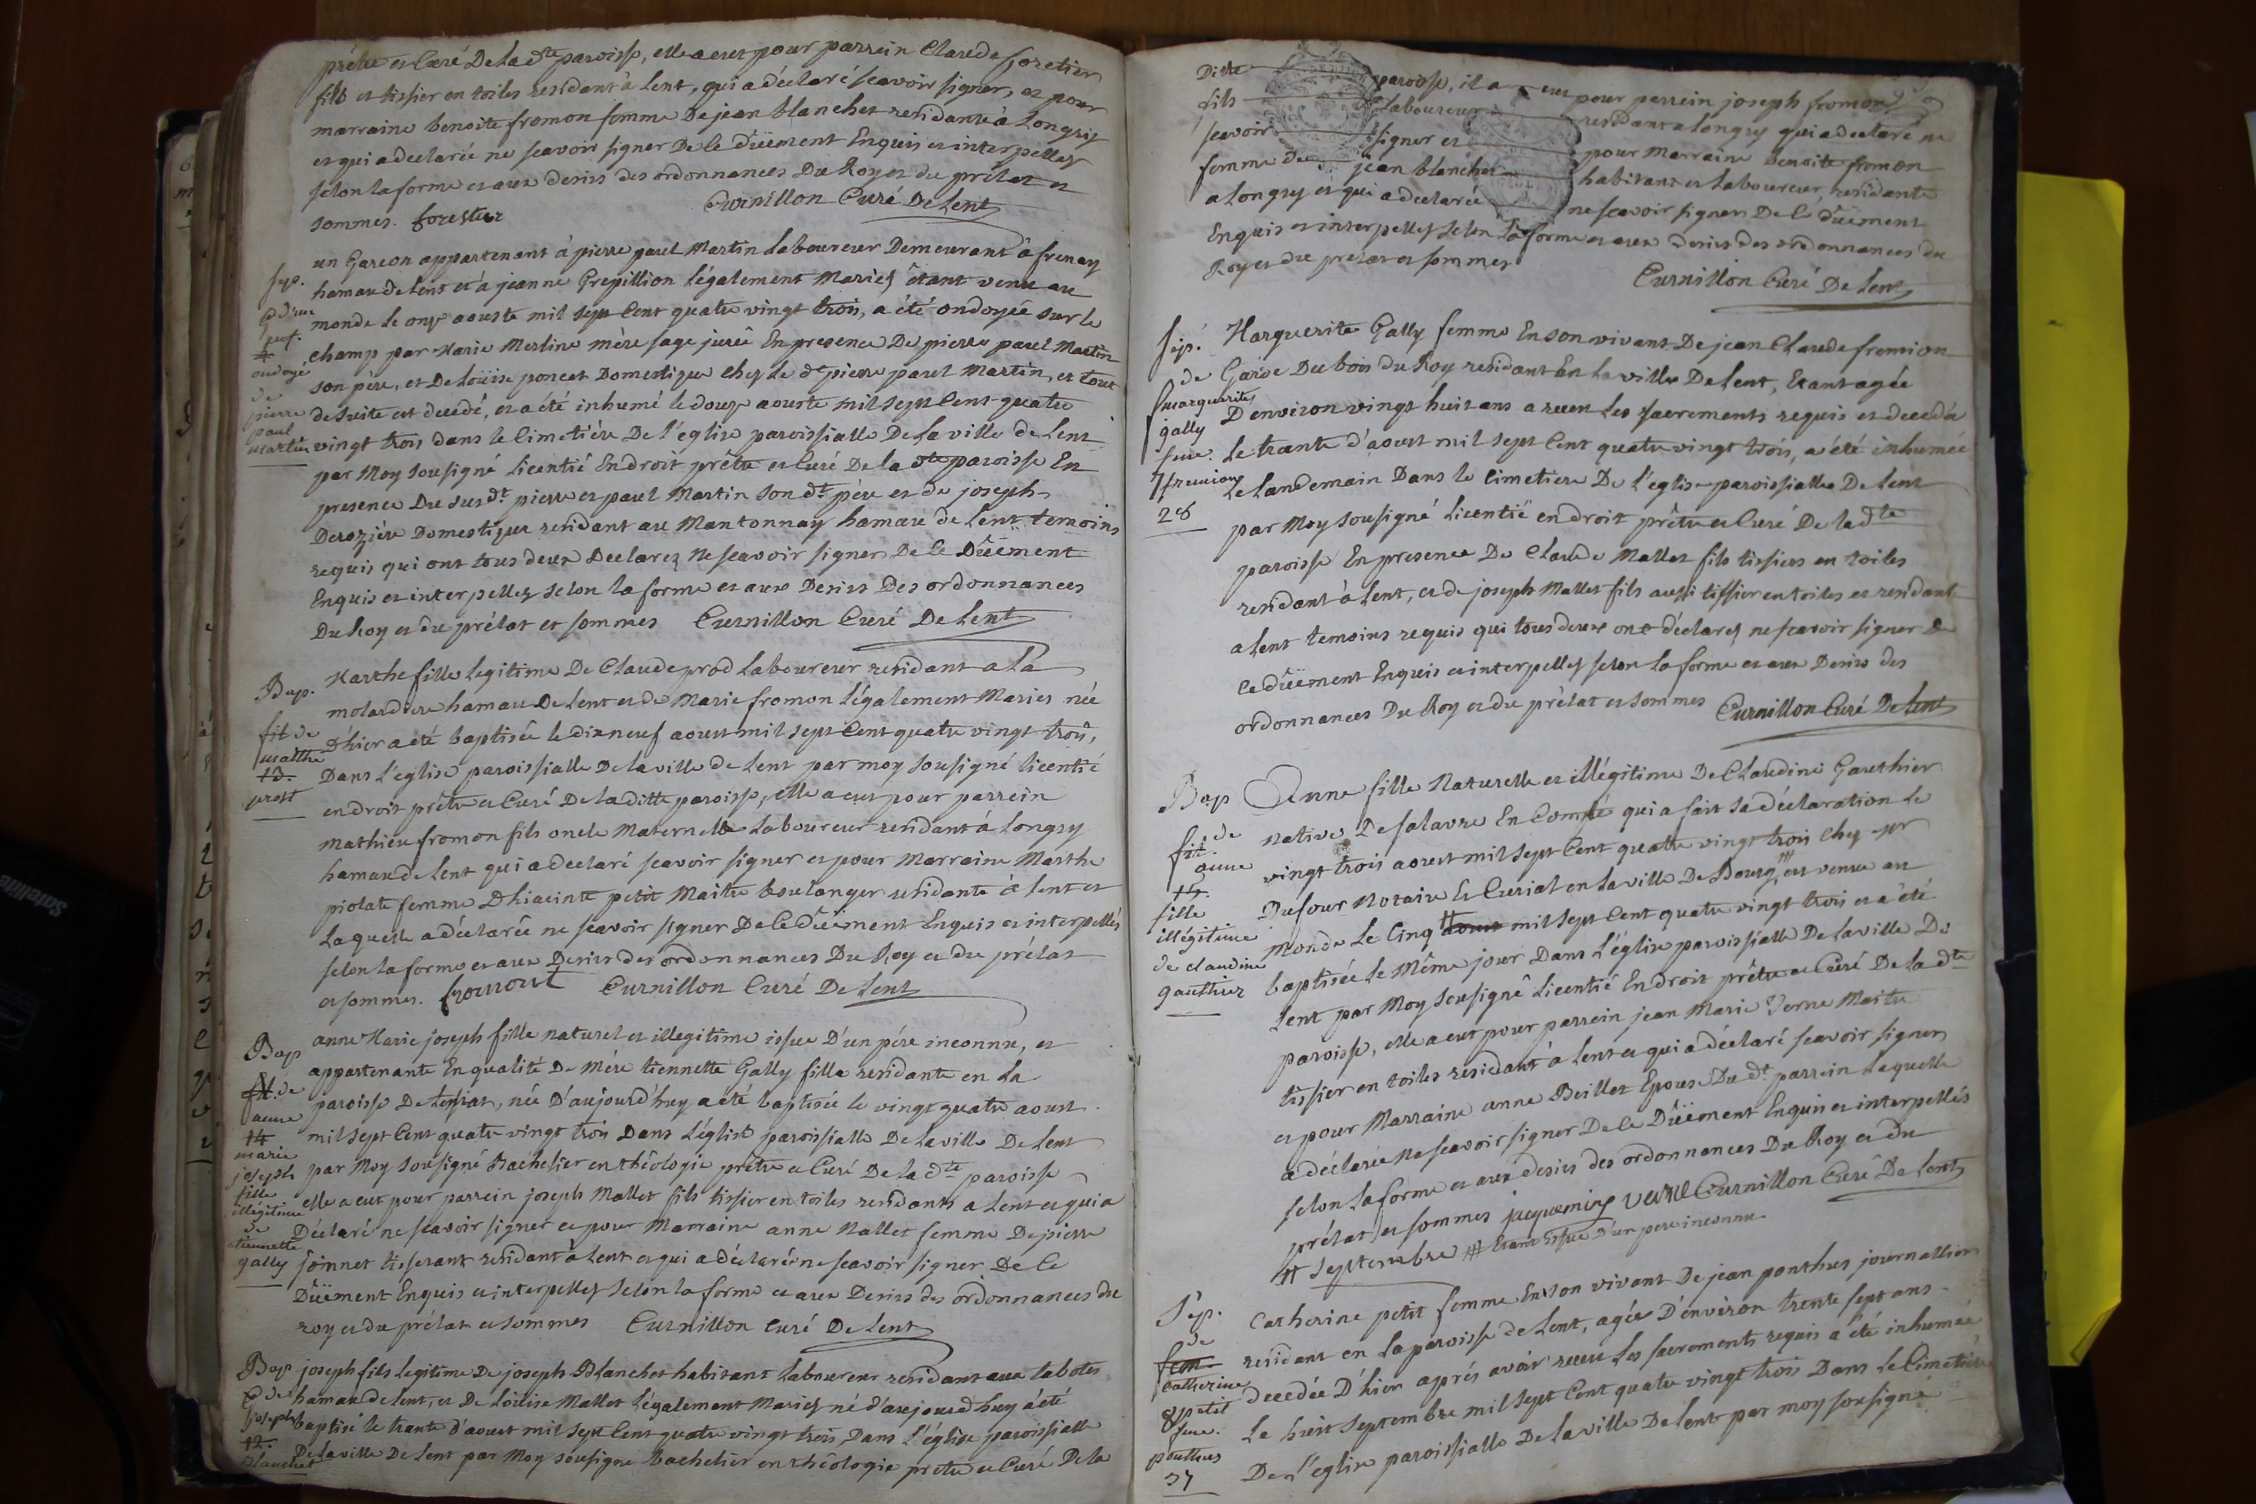 prêtre et Curé De la dte paroisse, elle a eut pour parrein Claude foretier
fils et tissier en toiles residant à Lent, qui a déclaré scavoir signer, et pour
marraine benoite fromon femme de jean blanchet residante à Longry
et qui a declarée ne scavoir signer De Ce dûëment Enquis et interpellez
selon la forme et aux desirs des ordonnances Du Roy et du prélat et
sommes. forestier Curnillon Curé De Lent
un Garcon appartenant à pierre paul Martin Laboureur Demeurant à frenay
hamau de Lent et à jeanne Grepillion légalement Mariez étant venu au
monde le onze aouste mil sept Cent quatre vingt trois, a été ondoyée sur le
champ par Marie Merline mère sage jurée En presence De pierre paul Martin
son père, et De Loüise poncet Domestique chez le dt pierre paul Martin, et tout
de suite est decedé, et a été inhumé le douze aouste mil sept Cent quatre
vingt trois dans le Cimetiére De l'eglise paroissialle De la ville de Lent
par Moy sousigné licentié En droit prêtre et Curé De la dte paroisse En
presence Du susdt pierre et paul Martin son dt père et de joseph
Deroziére Domestique residant au Mantonnay hamau de Lent temoins
requis qui ont tous deux Declarez ne scavoir signer De Ce Dûëment
Enquis et interpellez selon la forme et aux Desirs Des ordonnances
Du Roy et du prélat et sommes Curnillon Curé De Lent
sep.
ondoyé
de
pierre
paul
martin
Marthe fille legitime De Claude prod Laboureur residant a la
molardiere hamau De Lent et de Marie fromon légalement Maries née
D'hier a été baptisée le dixneuf aoust mil sept Cent quatre vingt trois,
Dans L'eglise paroissialle De la ville de Lent par moy sousigné licentié
en droit prêtre et Curé De la ditte paroisse, elle a eut pour parrein
mathieu fromon fils oncle Maternelle Laboureur residant à Longry
hamau de Lent qui a declaré scavoir signer et pour Marraine Marthe
piolate femme D'hiacinte petit Maitre boulanger residante à Lent et
Laquelle a déclarée ne scavoir signer De Ce Dûëment Enquis et interpellés
selon la forme et aux Desirs des ordonnances Du Roy et du prélat
et sommes. fromont Curnillon Curé De Lent
Bap.
de
marthe
13.
prost
anne Marie joseph fille naturel et illegitime issue D'un père inconnu, et
appartenante En qualité De Mére tiennette Gally fille residante en La
paroisse De, née D'aujourd'huy a été baptisée le vingt quatre aoust
mil sept Cent quatre vingt trois Dans L'églist paroissialle De la ville De Lent
par Moy sousigné Bachelier en théologie prêtre et Curé De la dte paroisse
elle a eut pour parrein joseph Mallet fils tissier en toiles residants a Lent et qui a
Déclaré ne scavoir signer et pour Marraine anne Mallet femme De pierre
joinnet tisserant residant à Lent et qui a déclarée ne scavoir signer De Ce
Dûëment Enquis et interpellez selon la forme et aux Desirs des ordonnances du
roy et du prélat et sommes Curnillon curé De Lent
Bap
de
anne
14
marie
joseph
fille
illégitime
de
tiennette
gally
joseph fils legitime De joseph Blanchet habitant Laboureur residant aux tabotes
hamau de Lent, et De Loüise Mallet légalement Mariez né d'aujourd'huy a été
baptisé le trante d'aoust mil sept Cent quatre vingt trois Dans L'église paroissiall
De la ville De Lent par Moy sousigné bachelier en théologie prêtre et Curé De la
Bap
de
joseph
12.
blanchet
Ditte paroisse, il a eut pour perrein joseph fromon
fils Laboureur residant a Longry qui a declaré ne
scavoir signer et pour Marraine benoite fromon
femme de jean blanchet habitant et Laboureur, residante
a Longry et qui a declarée ne scavoir signer De Ce dûëment
Enquis et interpellez selon la forme et aux desirs des ordonnances du
Roy et du prelat et sommes
Curnillon Curé De Lent
Marguerite Gally femme En son vivant De jean Claude fremion
Garde Du bois du Roy residant En la ville De Lent, Etant agée
D'environ vingt huit ans a receu les sacrements requis et decedée
le trante d'aoust mil sept Cent quatre vingt trois, a été inhumée
le landemain Dans le Cimetiere De L'eglise paroissialle De Lent
par Moy sousigné licentié en droit prêtre et Curé De la dte
paroisse En presence De Claude Mallet fils tissiers en toiles
residant à Lent, et de joseph Mallet fils aussi tissier en toiles et residant
a Lent temoins requis qui tous deux ont déclarez ne scavoir signer De
ce dûëment Enquis et interpellez selon la forme et aux Desirs des
ordonnances Du Roy et du prélat et sommes Curnillon Curé De Lent
sep.
de
marguerite
gally
feme.
fremion
28
Anne fille Naturelle et illégitime De Claudine Gauthier
native De salavre En Comté qui a fait sa déclaration le
vingt trois aoust mil sept Cent quatre vingt trois chez mr
Dufour Notaire Et Curial en la ville De Bourg, ## est venue au
monde le Cinq # aoust mil sept Cent quatre vingt trois et a été
baptisée le Même jour Dans L'église paroissialle De la ville De
Lent par Moy sousigné licentié En droit prêtre et Curé De la dte
paroisse, elle a eut pour parrein jean Marie Verne Maitre
tissier en toiles residant à Lent et qui a déclaré scavoir signer
et pour Marraine anne Beillet Epouse Du dt parrein Laquelle
a déclarée ne scavoir signer De Ce Dûëment Enquis et interpellés
selon la forme et aux desirs des ordonnances Du Roy et du
prélat et sommes verne Curnillon Curé De Lent
# septembre ## Etant issue d'un pere inconnu.
Bap
de
anne
14.
fille
illégitime
de claudine
gauthier
Catherine petit femme En son vivant De jean ponthus journallier
residant en La paroisse de Lent, agée D'environ trente sept ans
decedée D'hier aprés avoir receu Les sacrements requis a été inhumée
Le huit septembre mil sept Cent quatre vingt trois Dans Le Cimetière
De l'eglise paroissialle De la ville De Lent par moy sousigné
sep.
de
catherine
petit
feme.
ponthus
37